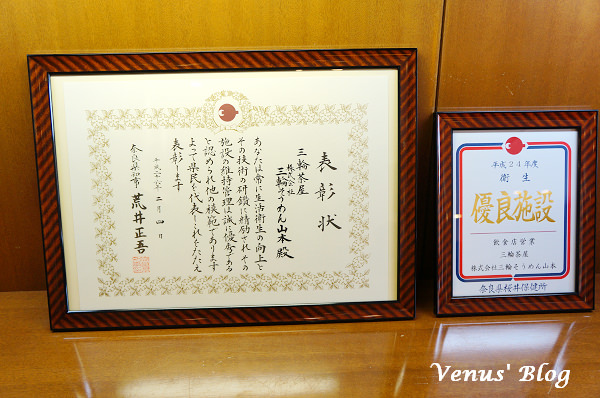 表彰状
三輪茶屋
株式会社
三輪そうめん山本 殿
あなたは常に生活衛生の向上と
その技術の研鑽に精励されその
施設の維持管理は誠に優秀である
と認められ他の模範であります
よって県民を代表しこれをたたえ
表彰します
二月四日
奈良県知事 荒井正吾
平成24年度
衛生
優良施設
飲食店営業
三輪茶屋
株式会社三輪そうめん山本
奈良県桜井保健所
Venus' Blog